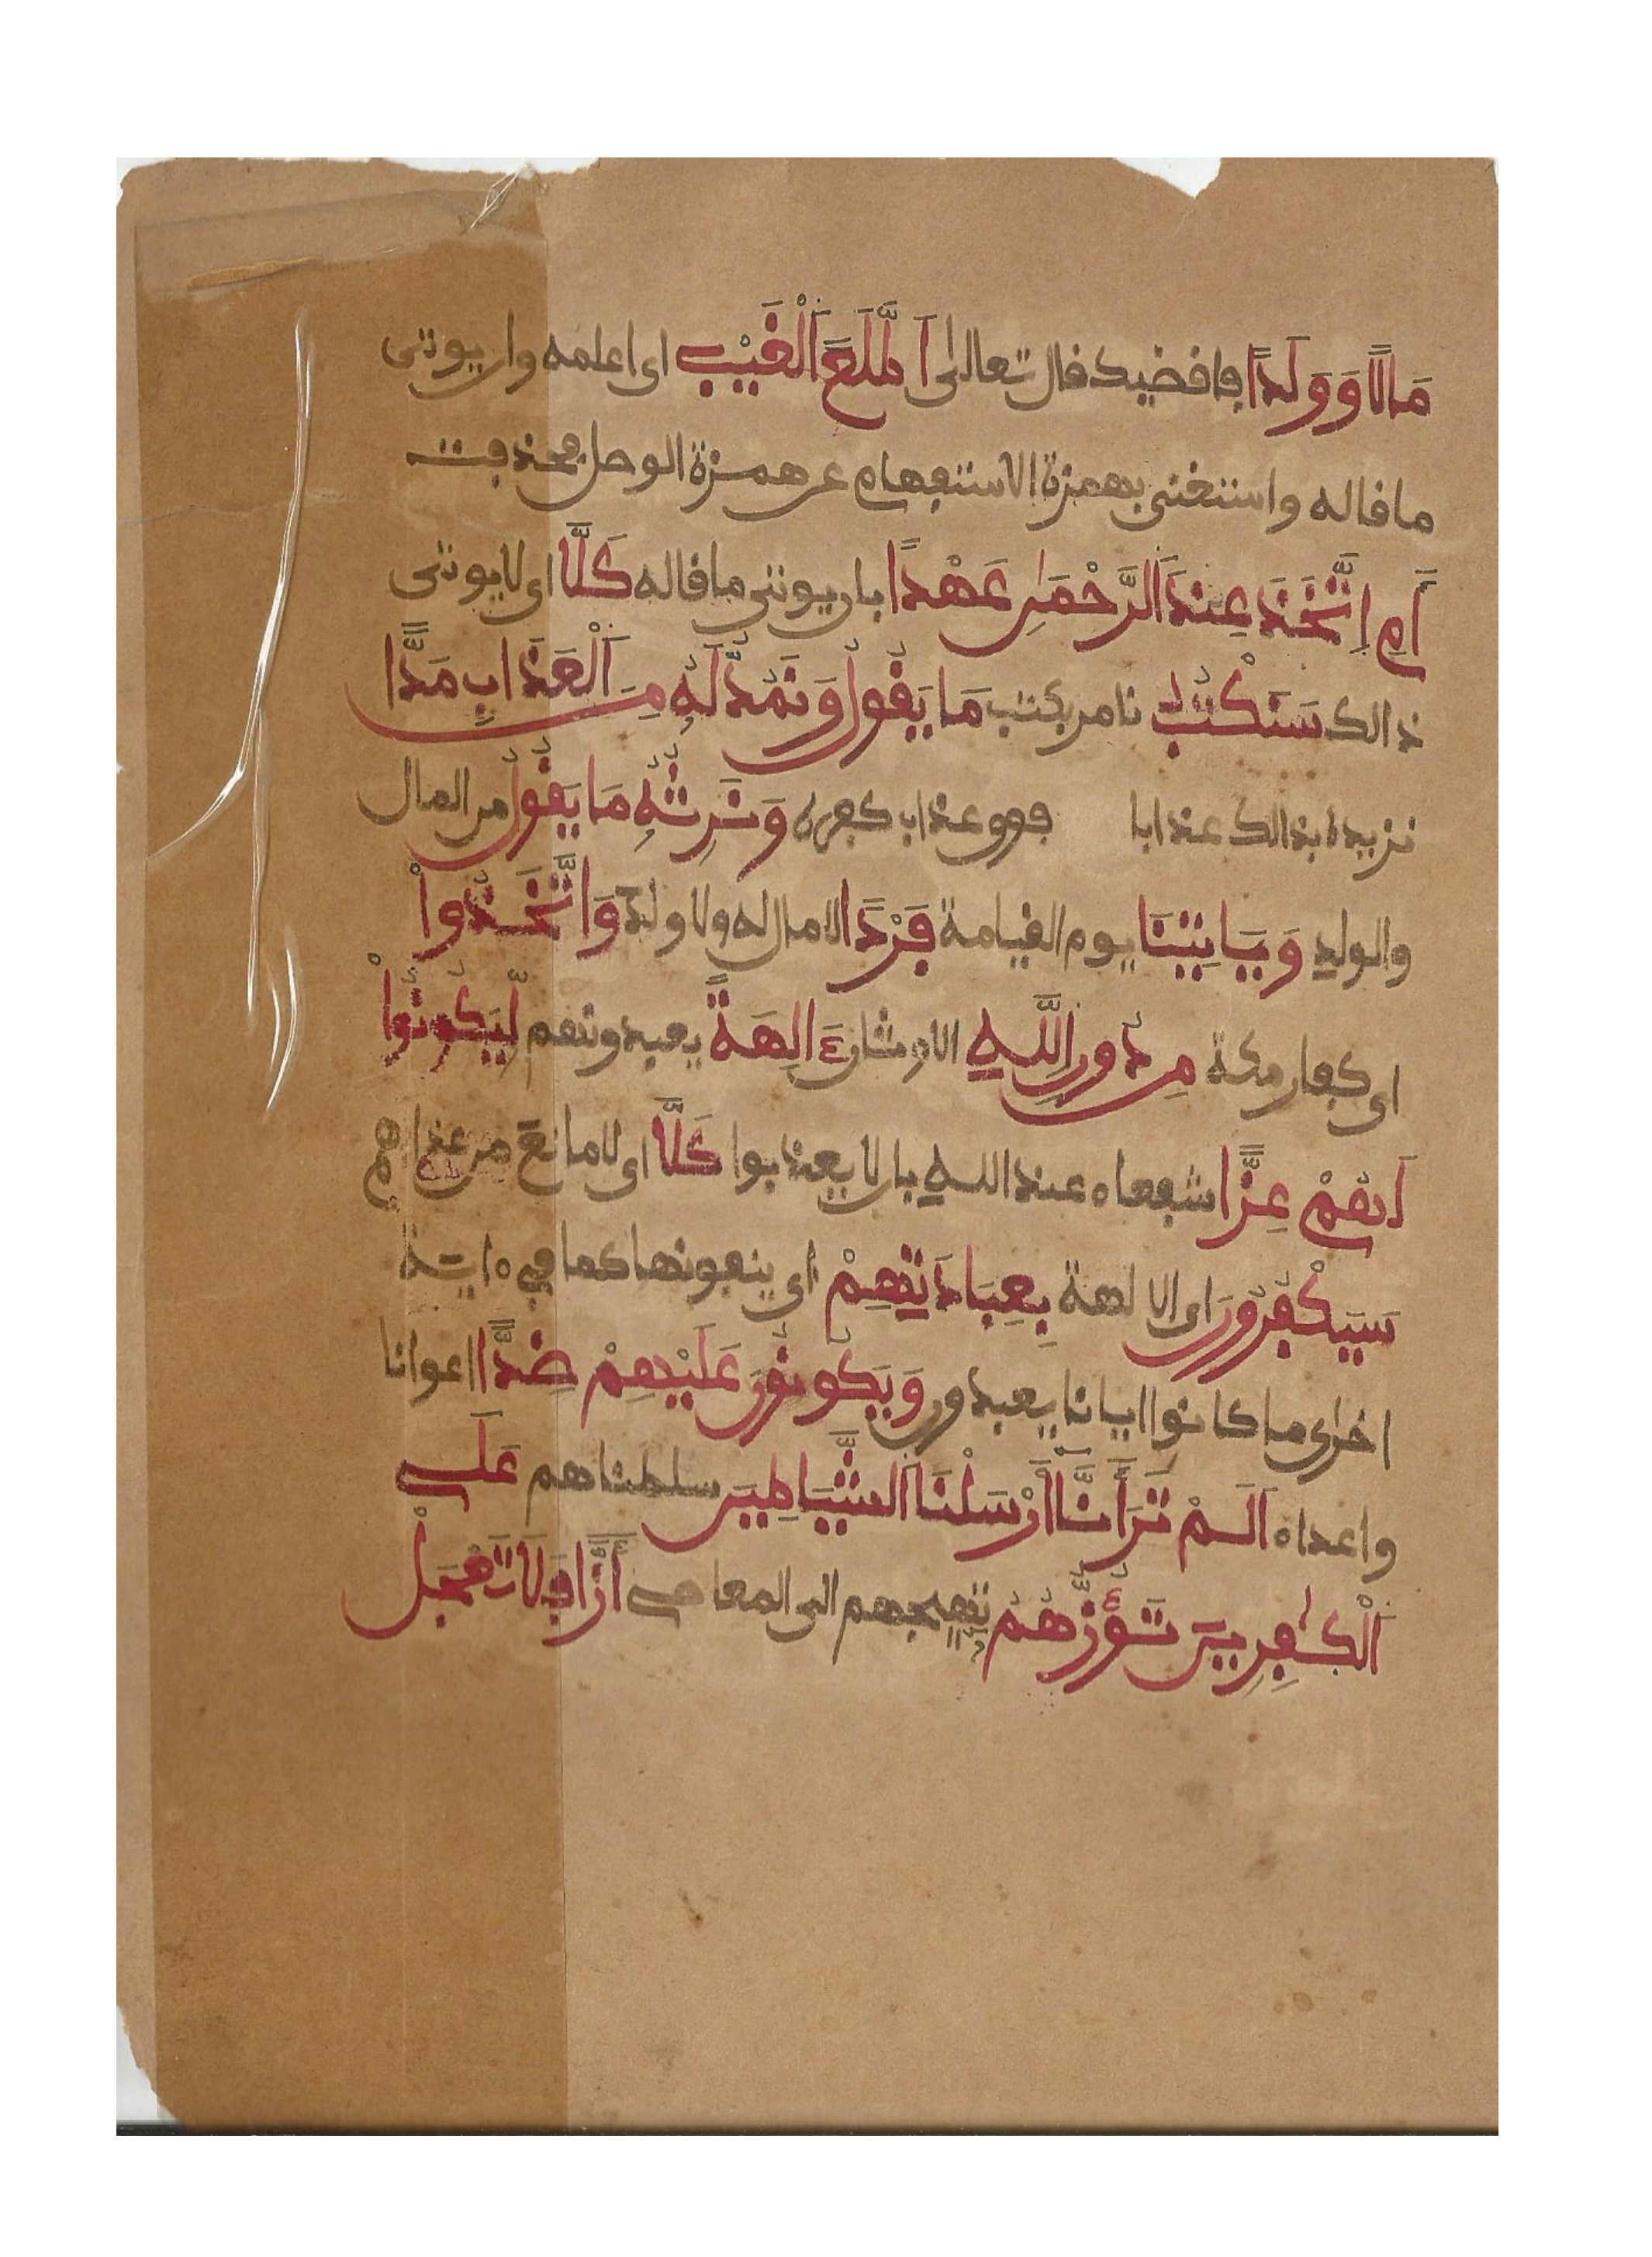 مَالًا وَوَلَدًا فافضيك فال تعالى اَطَّلَعَ اَلْغَيْبَ اى اعلمه وان يوتى
ما فاله واستغنى بهمزة الاستفهام عن همزة الوصل فحذفت
أَمِ اِتَّخَذَ عِندَ اَلرَّحْمَٰنِ عَهْدًا بان يوتى ما فاله كَلَّا اى لا يوتى
ذالك سَنَكْتُبُ نامر بكتب مَا يَفُولُ وَنَمُدُّ لَهُ مِنَ اَلْعَذَابِ مَدًّا
نزيده بذالك عذابا فوق عذاب كفره وَنَرِثُهُ مَا يَفُولُ من المال
والولد وَيَاتِينَا يوم الفيامة فَرْدًا لا مال له ولا ولد وَاتَّخَذُواْ
اى كفار مكة مِن دُونِ اِللَّهِ الاوثان ءَالِهَةً يعبدونهم لِّيَكُونُواْ
لَهُمْ عِزًّا شفعاء عند الله بان لا يعذبوا كَلَّا اى لا مانع من عذابهم
سَيَكْفُرُونَ اى الالهة بِعِبَادَتِهِمْ اى ينفونها كما في ءاية
اخرى ما كانوا ايانا يعبدون وَيَكُونُونَ عَلَيْهِمْ ضِدًّا اعوانا
واعداء اَلَمْ تَرَ أَنَّا أَرْسَلْنَا اَلشَّيَاطِينَ سلطناهم عَلَى
اَلْكَٰفِرِينَ تَؤُزُّهُمْ تهيجهم الى المعاصى أَزًّا فَلَا تَعْجَلْ